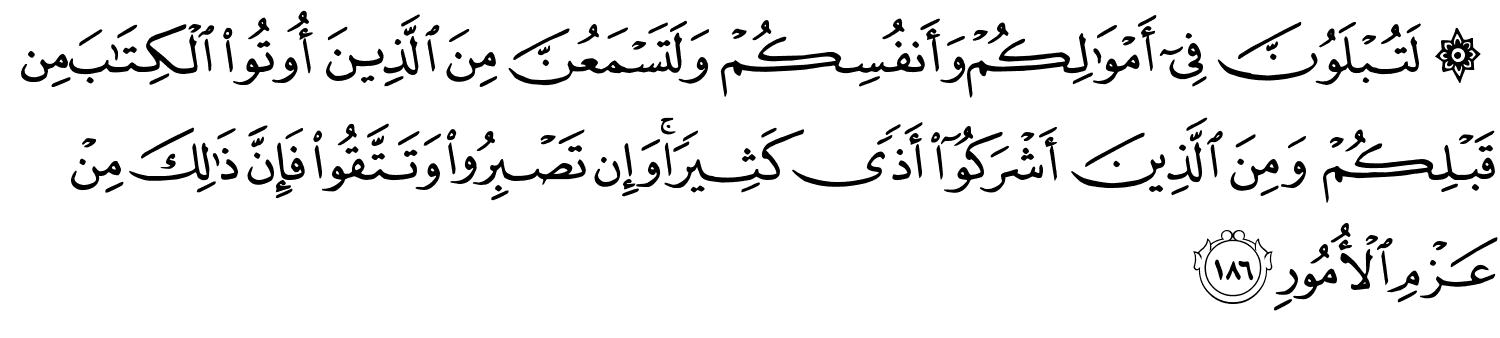 ۞ لَتُبْلَوُنَّ فِىٓ أَمْوَٰلِكُمْ وَأَنفُسِكُمْ وَلَتَسْمَعُنَّ مِنَ ٱلَّذِينَ أُوتُوا۟ ٱلْكِتَـٰبَ مِن
قَبْلِكُمْ وَمِنَ ٱلَّذِينَ أَشْرَكُوٓا۟ أَذًى كَثِيرًا ۚ وَإِن تَصْبِرُوا۟ وَتَتَّقُوا۟ فَإِنَّ ذَٰلِكَ مِنْ
عَزْمِ ٱلْأُمُورِ ١٨٦